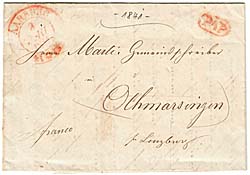 -1841-
P.P.
Herrn Marti, Gemeindschreiber
in
Othmarsingen
franco
pr Lenzburg